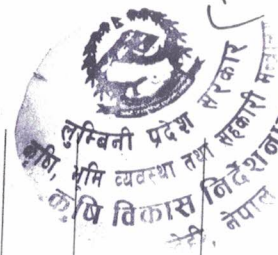 लुम्बिनी प्रदेश सरकार
कृषि, भूमि व्यवस्था तथा सहकारी
कृषि विकास निर्देशना
नेपाल